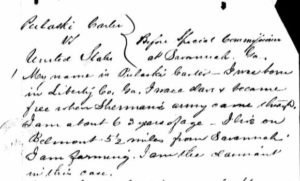 Pulaski Carter
vs
United States
Before Special Commissioner
at Savannah Ga.
My name is Pulaski Carter - I was born
in Liberty Co, Ga, I was a slave & became
free when Sherman's army came through
I am about 63 years of age. I live on
Belmont 5½ miles from Savannah
I am farming. I am the claimant
in this case.